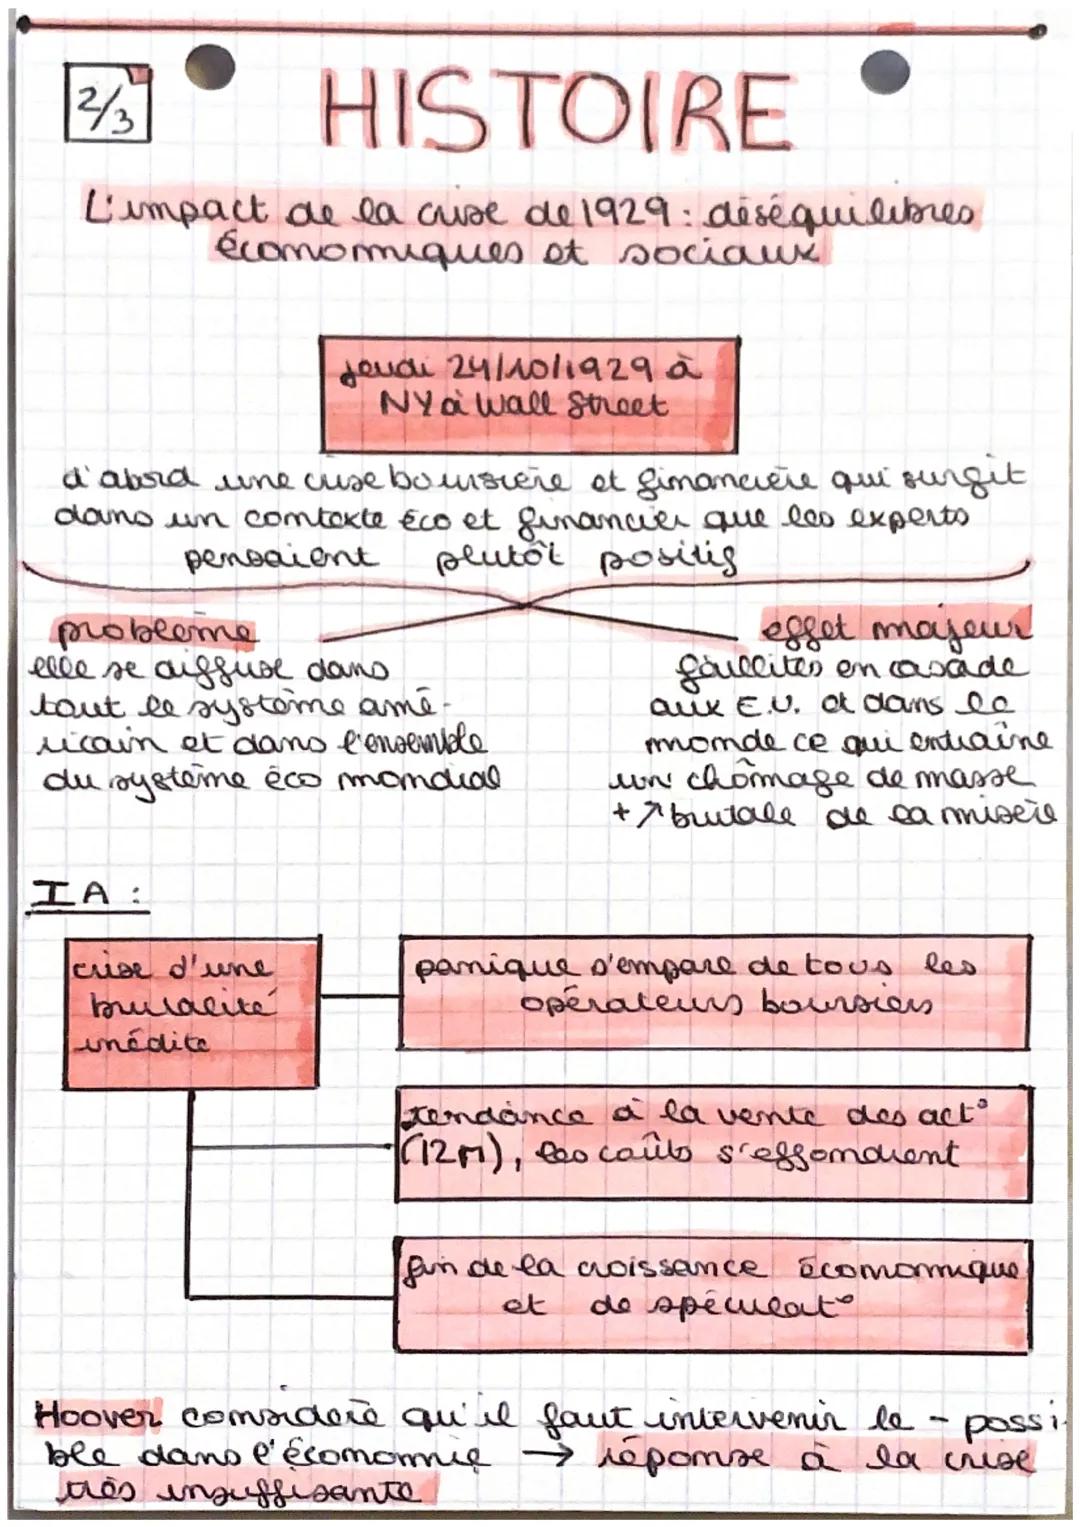 2/3
HISTOIRE
L'impact de la crise de 1929 : déséquilibres
économiques et sociaux
jeudi 24/10/1929 à
NY à Wall Street
d'abord une crise boursière et financière qui surgit
dans un contexte éco et financier que les experts
pensaient plutôt positif
problème
elle se diffuse dans
tout le système amé-
ricain et dans l'ensemble
du système éco mondial
effet majeur
faillites en cascade
aux E.U. et dans le
monde ce qui entraîne
un chômage de masse
+ ↗ brutale de la misère
I A :
crise d'une
brutalité
inédite
panique s'empare de tous les
opérateurs boursiers
tendance à la vente des act°
(12M), les coûts s'effondrent
fin de la croissance économique
et de spéculat°
Hoover considère qu'il faut intervenir le - possi-
ble dans l'économie → réponse à la crise
très insuffisante